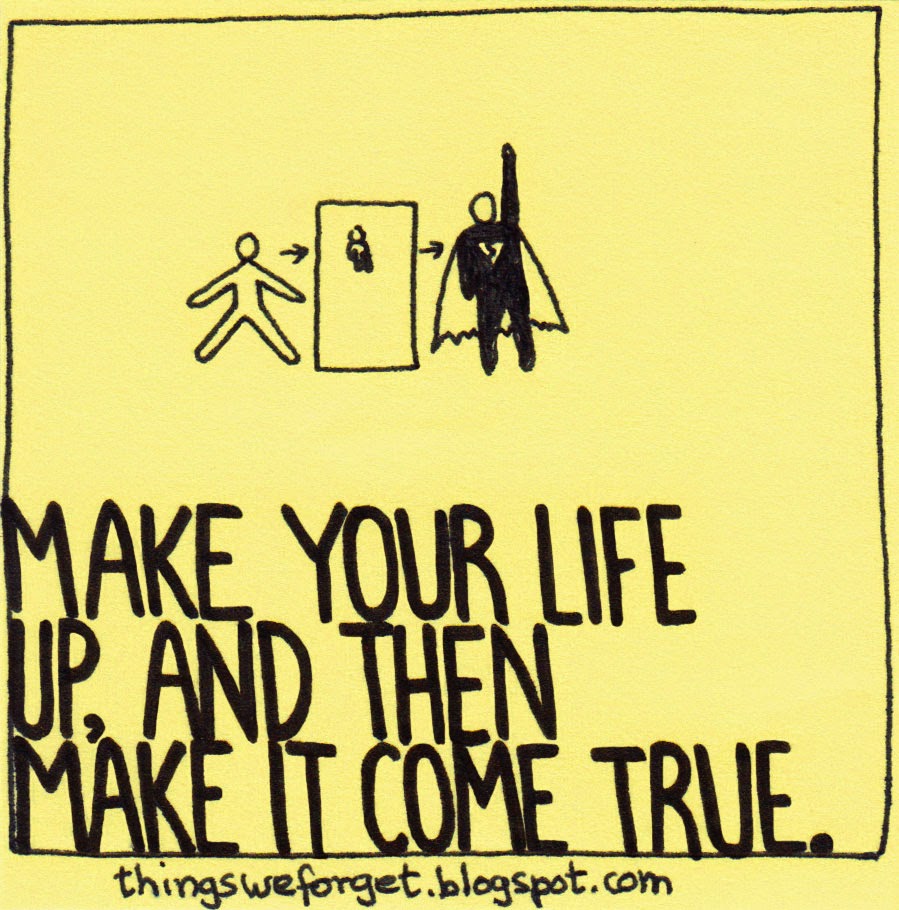 MAKE YOUR LIFE
UP, AND THEN
MAKE IT COME TRUE.
thingsweforget.blogspot.com